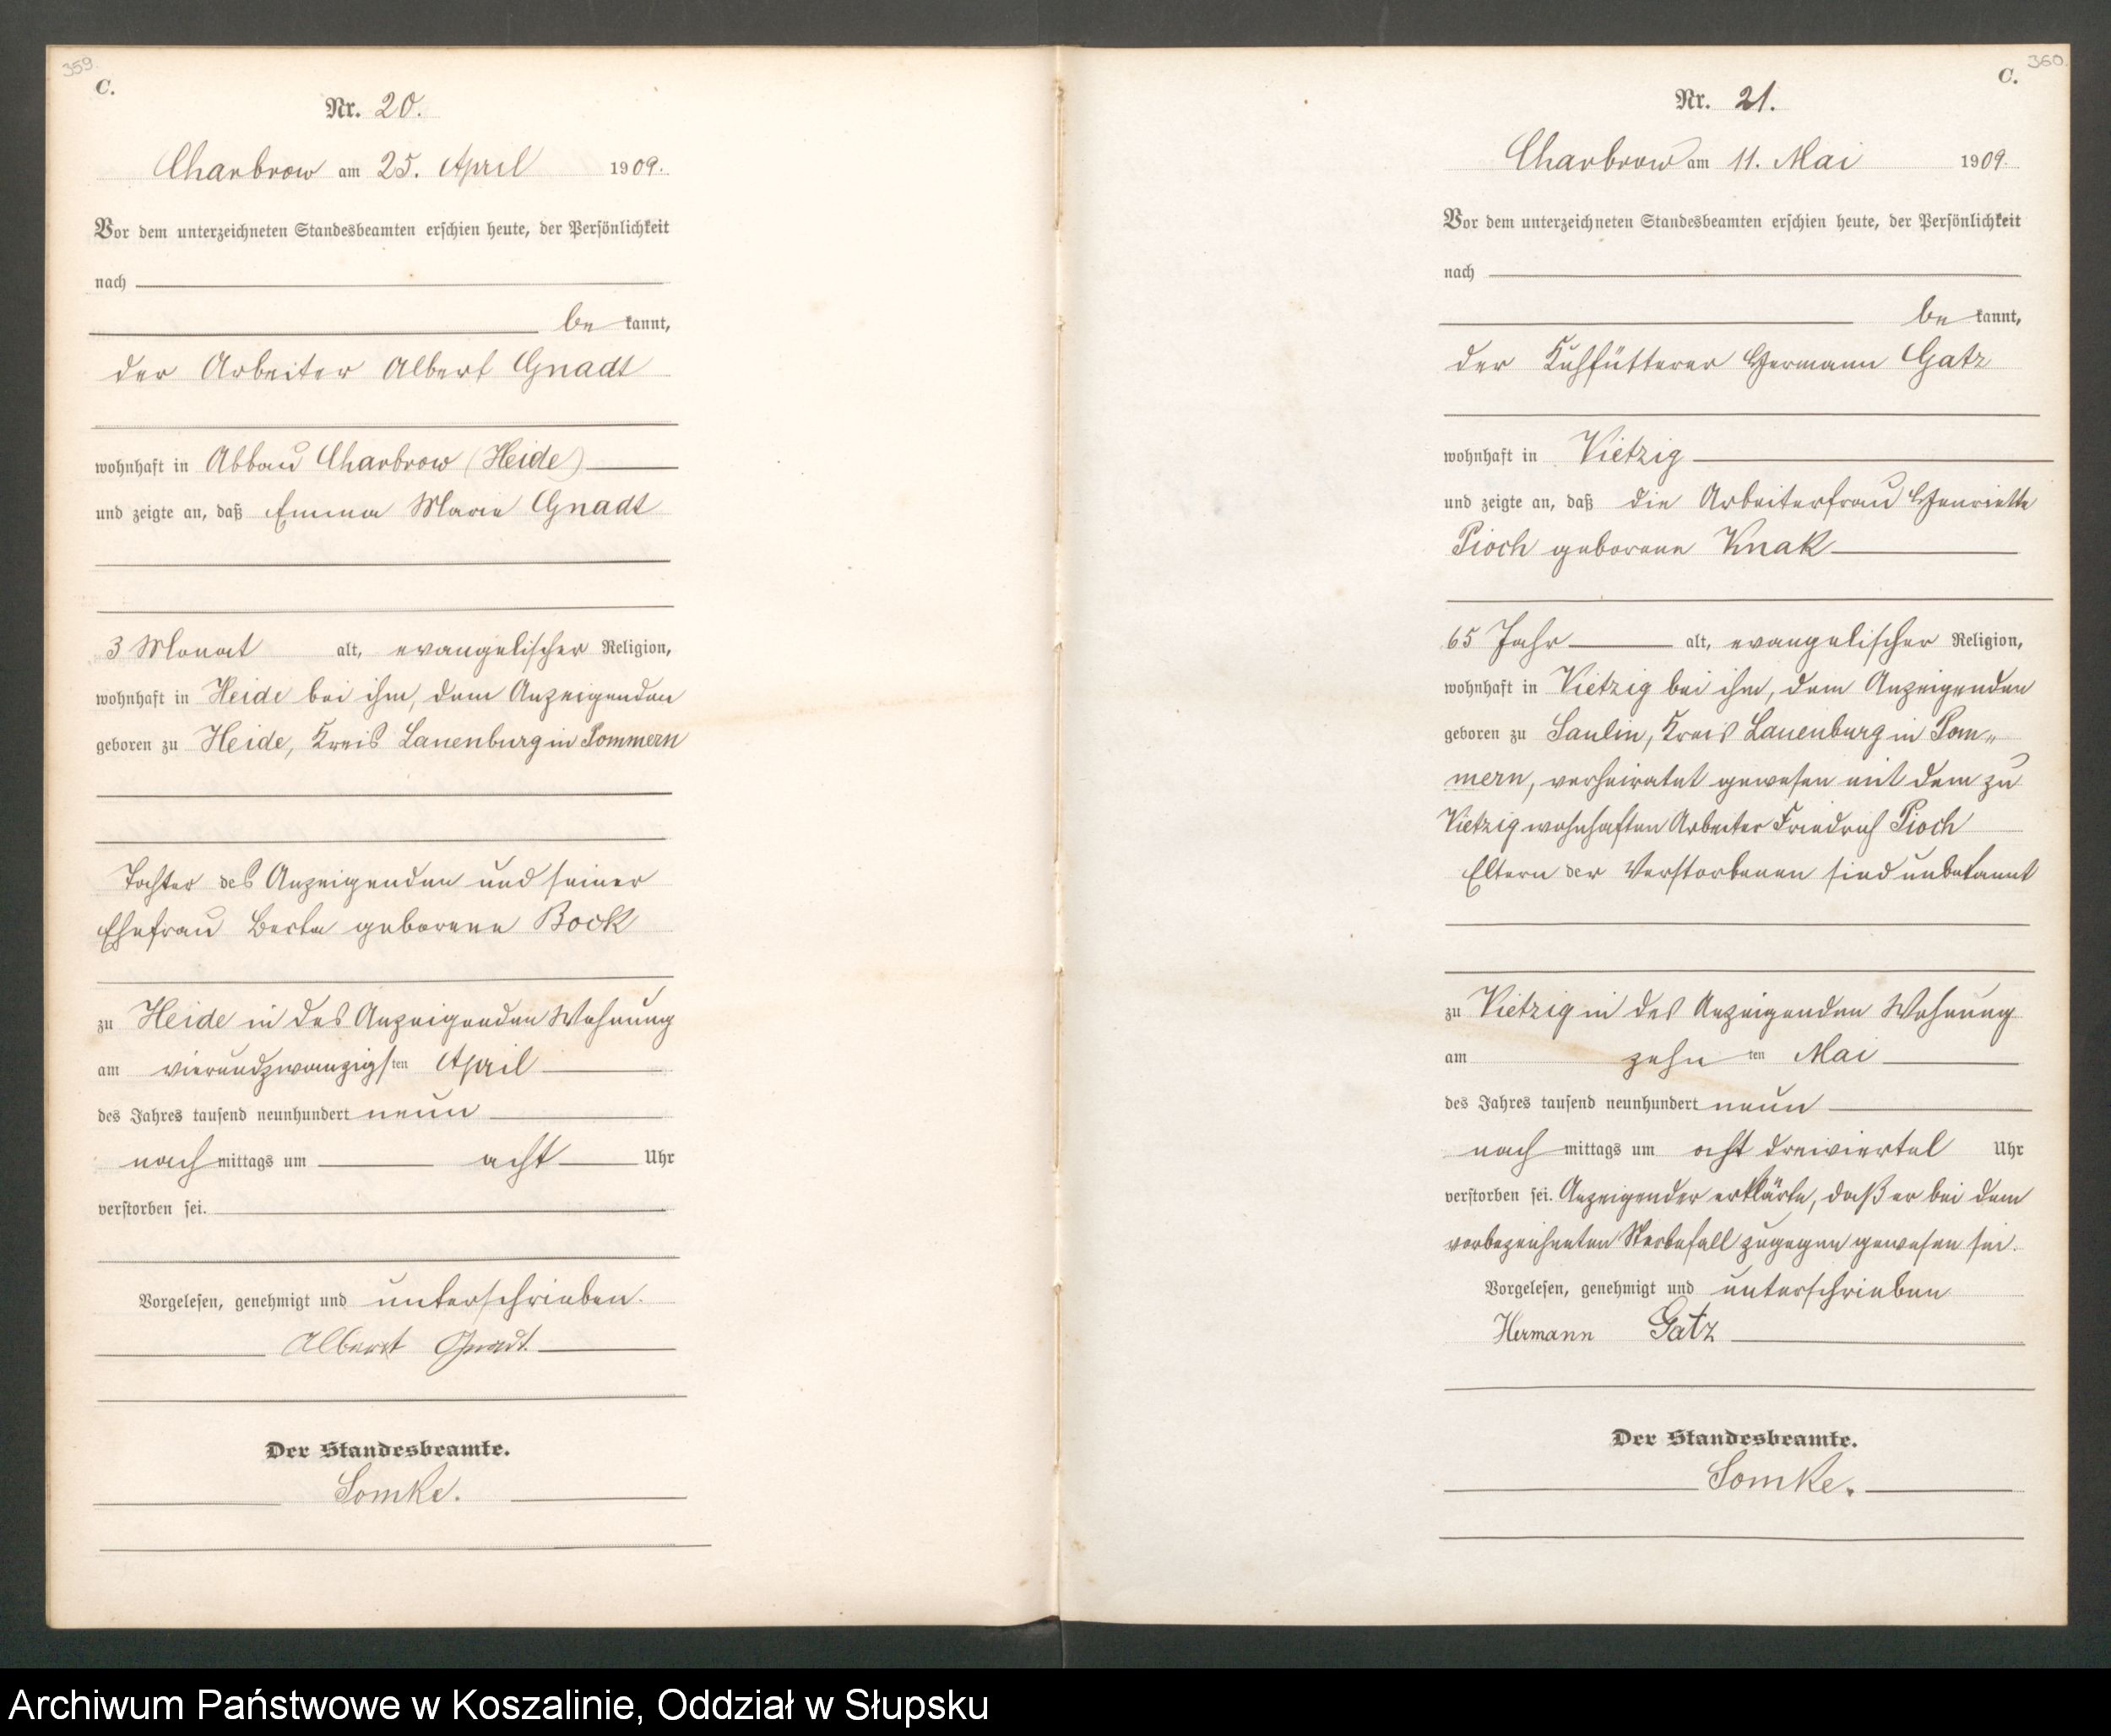 359.
C.
Nr. 20.
Charbrow am 25. April 1909.
Vor dem unterzeichneten Standesbeamten erschien heute, der Persönlichkeit
nach
be kannt,
der Arbeiter Albert Gnadt
wohnhaft in Abbau Charbrow (Heide)
und zeigte an, daß Emma Marie Gnadt
3 Monat alt, evangelischer Religion,
wohnhaft in Heide bei ihm, dem Anzeigenden
geboren zu Heide, Kreis Lauenburg in Pommern
Tochter des Anzeigenden und seiner
Ehefrau Berta geborene Bock
zu Heide in des Anzeigenden Wohnung
am vierundzwanzigsten April
des Jahres tausend neunhundert neun
nach mittags um acht Uhr
verstorben sei.
Vorgelesen, genehmigt und unterschrieben.
Albert Gnadt.
Der Standesbeamte.
Somke.
360.
C.
Nr. 21.
Charbrow am 11. Mai 1909.
Vor dem unterzeichneten Standesbeamten erschien heute, der Persönlichkeit
nach
be kannt,
der Kuhfütterer Hermann Gatz
wohnhaft in Vietzig
und zeigte an, daß die Arbeiterfrau Henriette
Pioch geborene Knak
65 Jahr alt, evangelischer Religion,
wohnhaft in Vietzig bei ihm, dem Anzeigenden
geboren zu Saulin, Kreis Lauenburg in Pom„
mern, verheiratet gewesen mit dem zu
Vietzig wohnhaften Arbeiter Friedrich Pioch
Eltern der Verstorbenen sind unbekannt
zu Vietzig in des Anzeigenden Wohnung
am zehn ten Mai
des Jahres tausend neunhundert neun
nach mittags um acht dreiviertel Uhr
verstorben sei. Anzeigender erklärte, daß er bei dem
vorbezeichneten Sterbefall zugegen gewesen sei.
Vorgelesen, genehmigt und unterschrieben
Hermann Gatz
Der Standesbeamte.
Somke.
Archiwum Państwowe w Koszalinie, Oddział w Słupsku